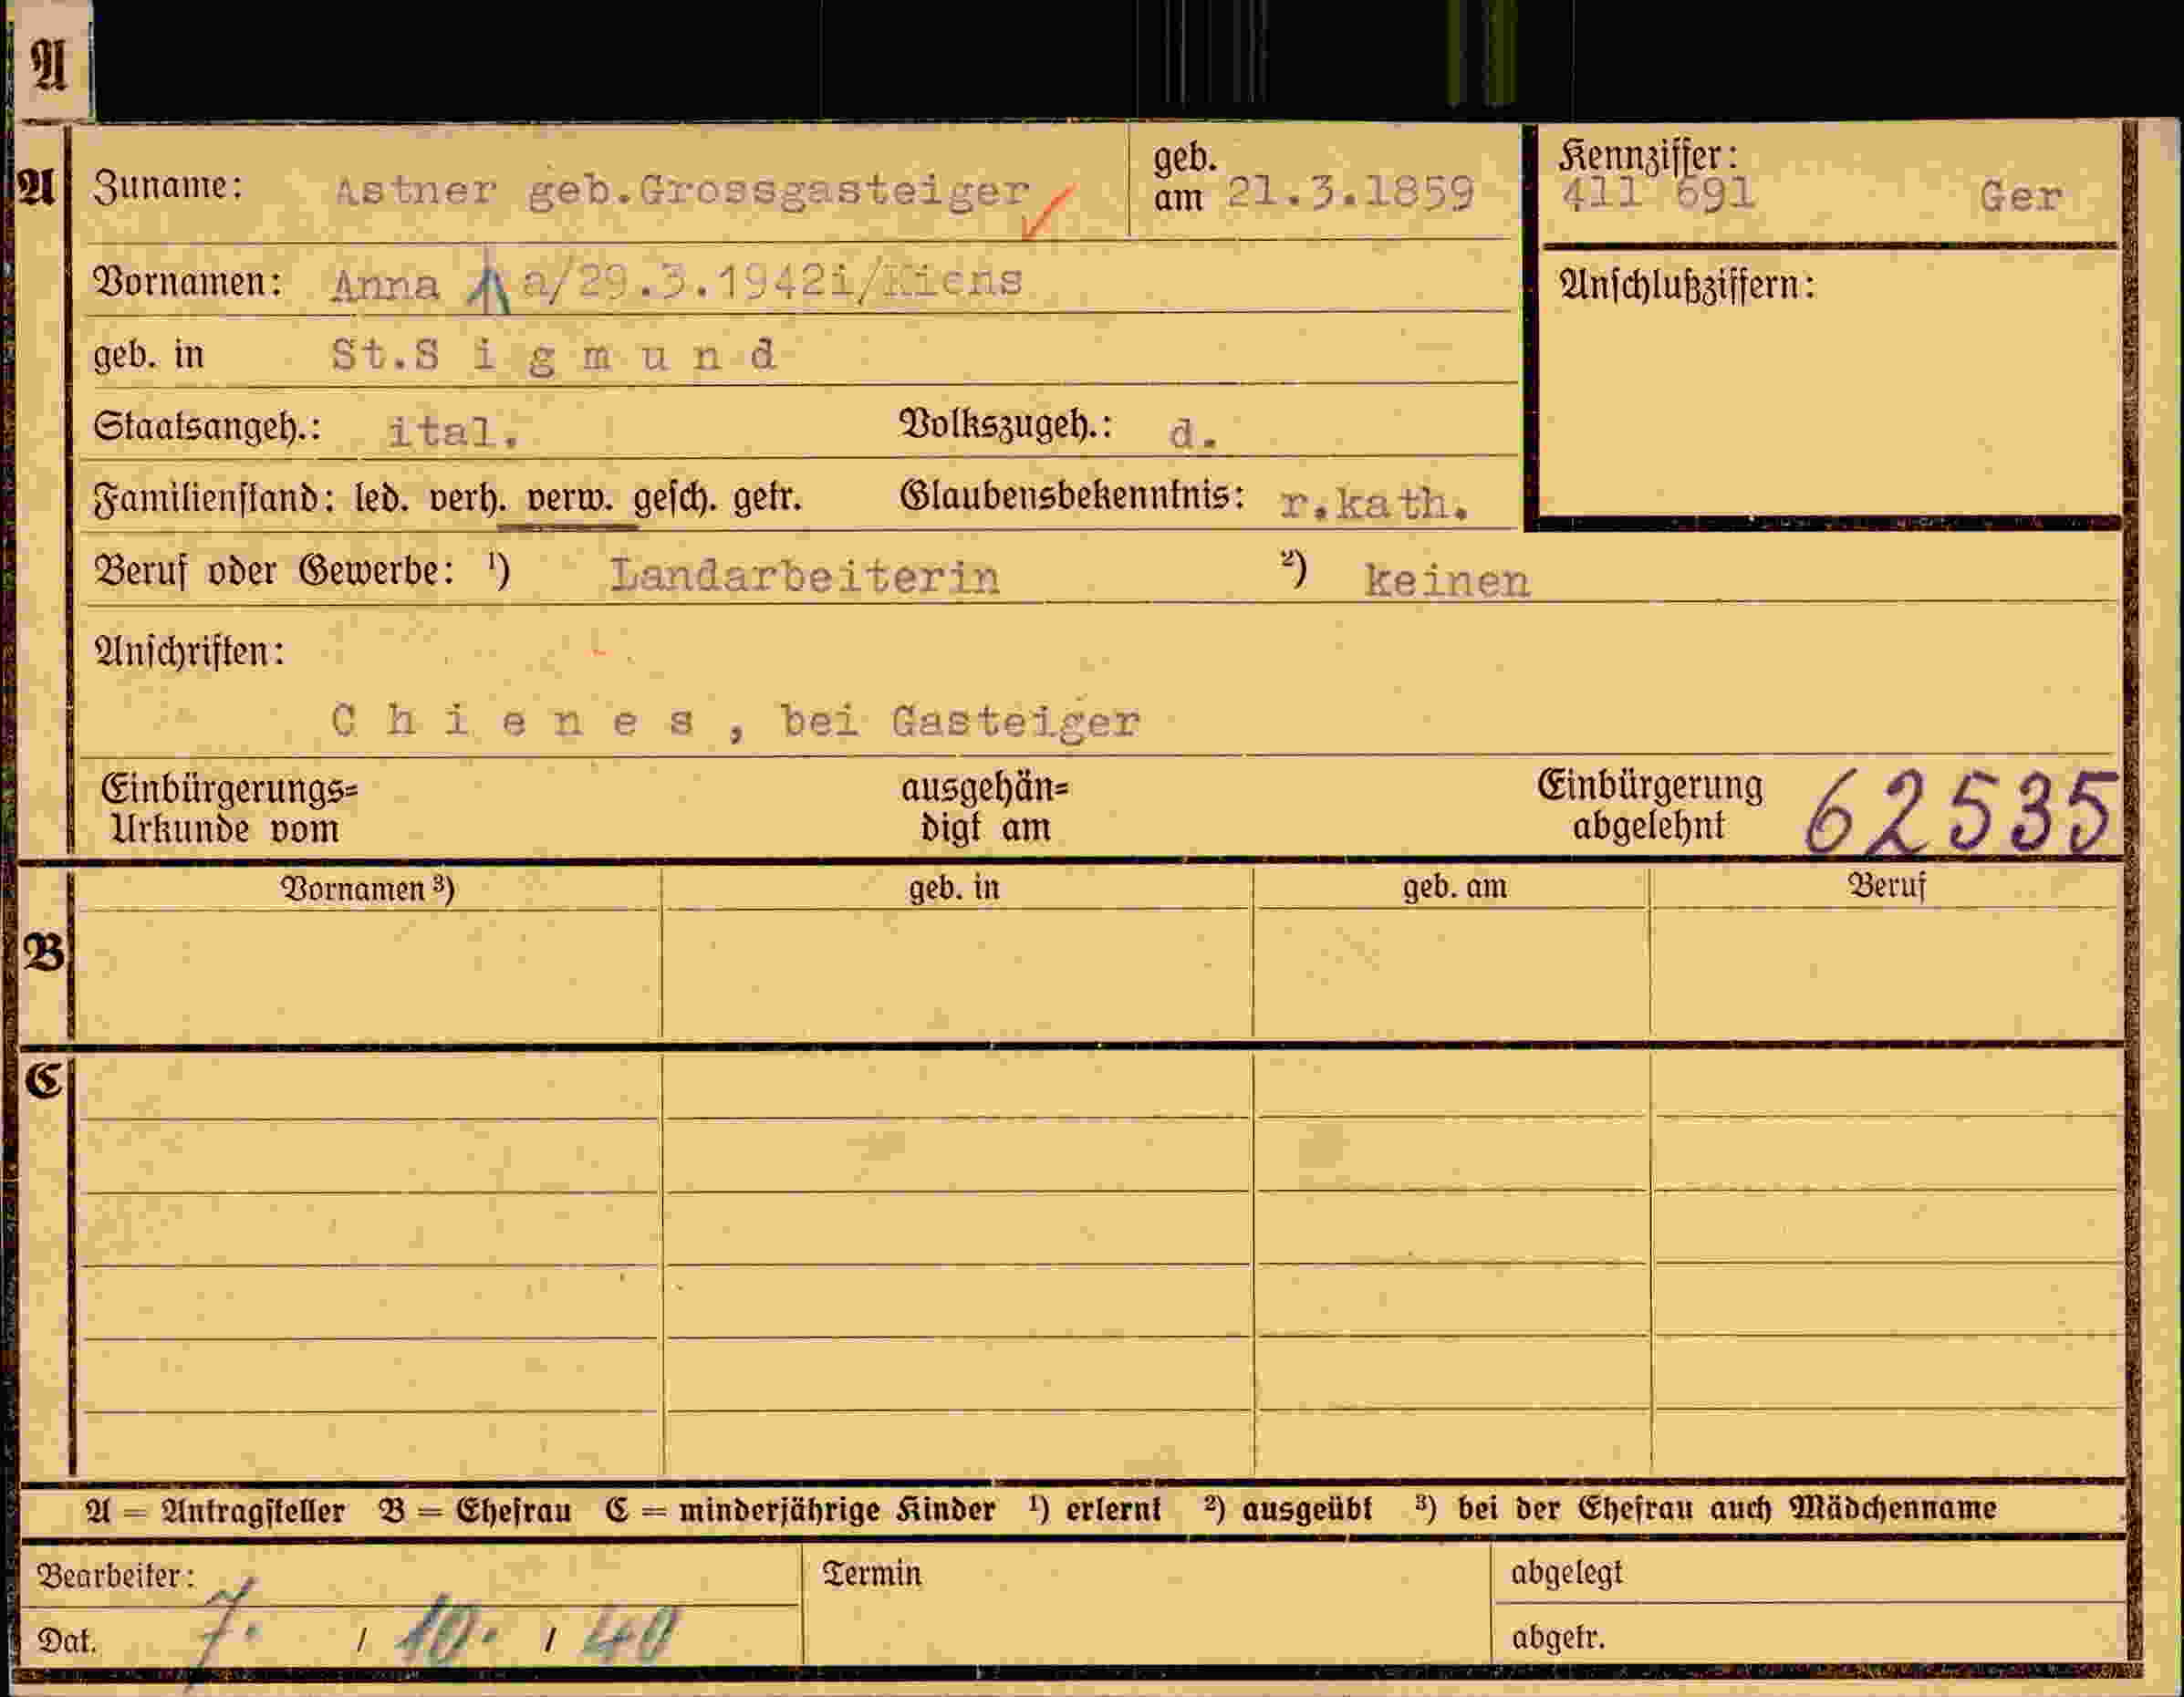 A
A
Zuname: Astner geb.Grossgasteiger
geb. am 21.3.1859
Kennziffer:
411 691 Ger
Vornamen: Anna a/29.3.1942i/Kiens
Anschlußziffern:
geb. in St.S i g m u n d
Staatsangeh.: ital. Volkszugeh.: d.
Familienstand: led. verh. verw. gesch. getr. Glaubensbekenntnis: r.kath.
Beruf oder Gewerbe: ¹) Landarbeiterin ²) keinen
Anschriften:
C h i e n e s , bei Gasteiger
Einbürgerungs=
Urkunde vom
ausgehän=
digt am
Einbürgerung
abgelehnt
62535
Vornamen ³) geb. in geb. am Beruf
B
C
A = Antragsteller B = Ehefrau C = minderjährige Kinder ¹) erlernt ²) ausgeübt ³) bei der Ehefrau auch Mädchenname
Bearbeiter:
Dat. 7. / 10. / 40
Termin
abgelegt
abgetr.